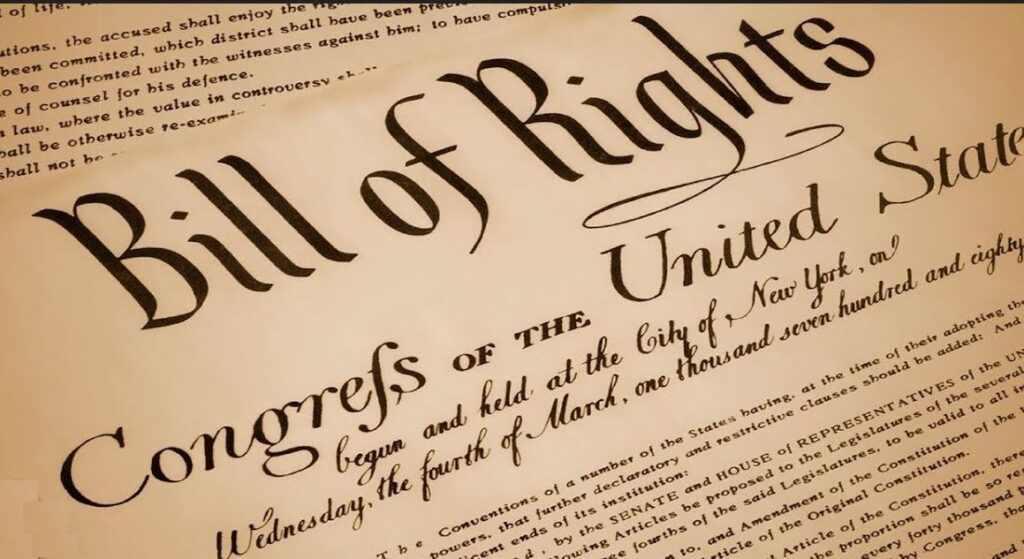 of life,
utions, the accused shall enjoy the
been committed, which district shall have been
o be confronted with the witnesses against him; to have
e of counsel for his defence.
law, where the value in controversy
hall be otherwise
shall not be
Bill of Rights
Congreſs OF THE United State
begun and held at the City of New York, on
Wednesday, the fourth of March, one thousand seven hundred and eighty
The Conventions of a number of the States having, at the time of their adopting the
powers, that further declaratory and restrictive clauses should be added: And
icent ends of its institution:
d, by the SENATE and HOUSE of REPRESENTATIVES of the UN
lowing Articles be proposed to the Legislatures of the several
ee fourths of the said Legislatures, to be valid to all in
n to, and Amendment of the Constitution of the
ticle of the Original Constitution.
Article of the Constitution, there
proportion shall be so re
every forty thousand
Congress, tha